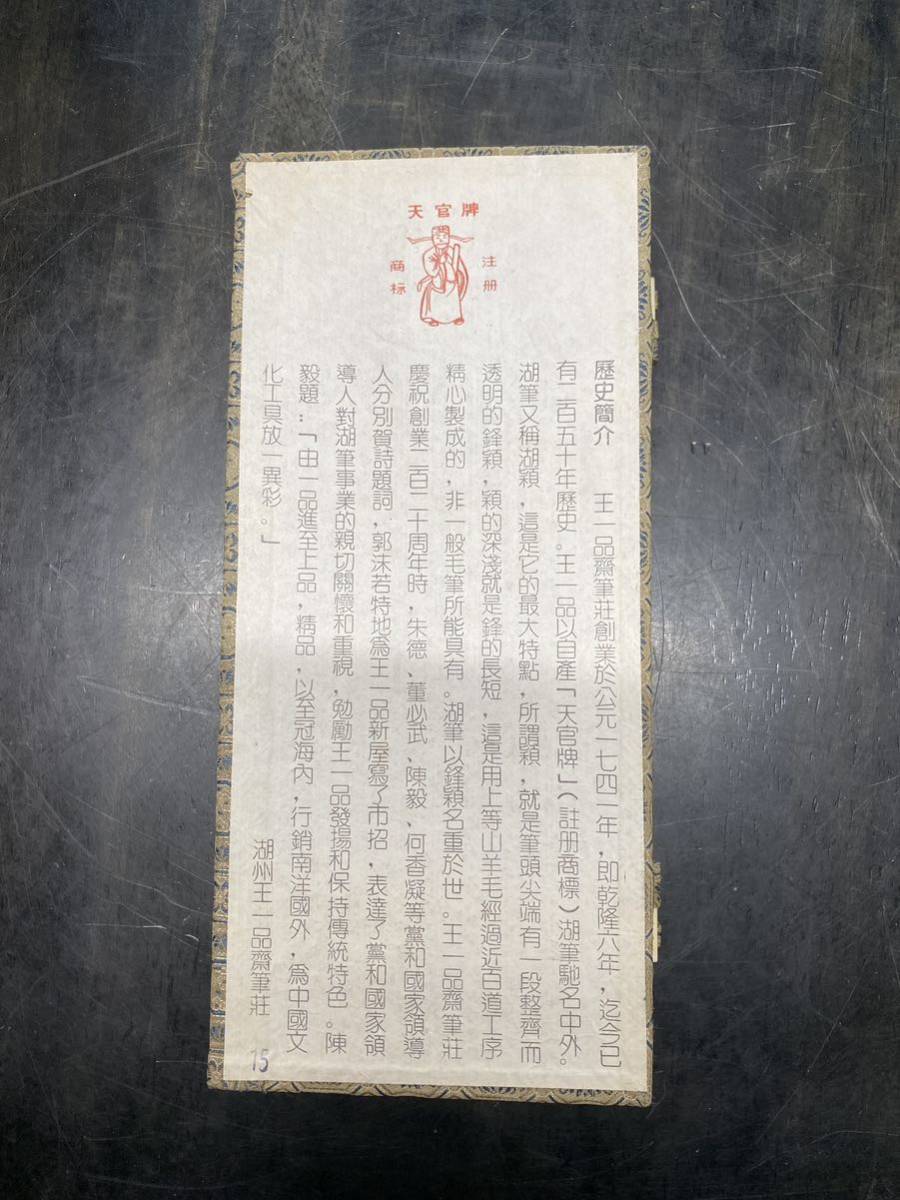 天官牌
注册
商标
歷史簡介　　王一品齋筆莊創業於公元一七四一年，即乾隆六年，迄今已
有二百五十年歷史。王一品以自產「天官牌」（註册商標）湖筆馳名中外。
湖筆又稱湖穎，這是它的最大特點，所謂穎，就是筆頭尖端有一段整齊而
透明的鋒穎，穎的深淺就是鋒的長短，這是用上等山羊毛經過近百道工序
精心製成的，非一般毛筆所能具有。湖筆以鋒穎名重於世。王一品齋筆莊
慶祝創業二百二十周年時，朱德、董必武、陳毅、何香凝等黨和國家領導
人分別賀詩題詞，郭沫若特地爲王一品新屋寫了市招，表達了黨和國家領
導人對湖筆事業的親切關懷和重視，勉勵王一品發揚和保持傳統特色。陳
毅題：「由一品進至上品，精品，以至冠海內，行銷南洋國外，爲中國文
化工具放一異彩。」
湖州王一品齋筆莊
15